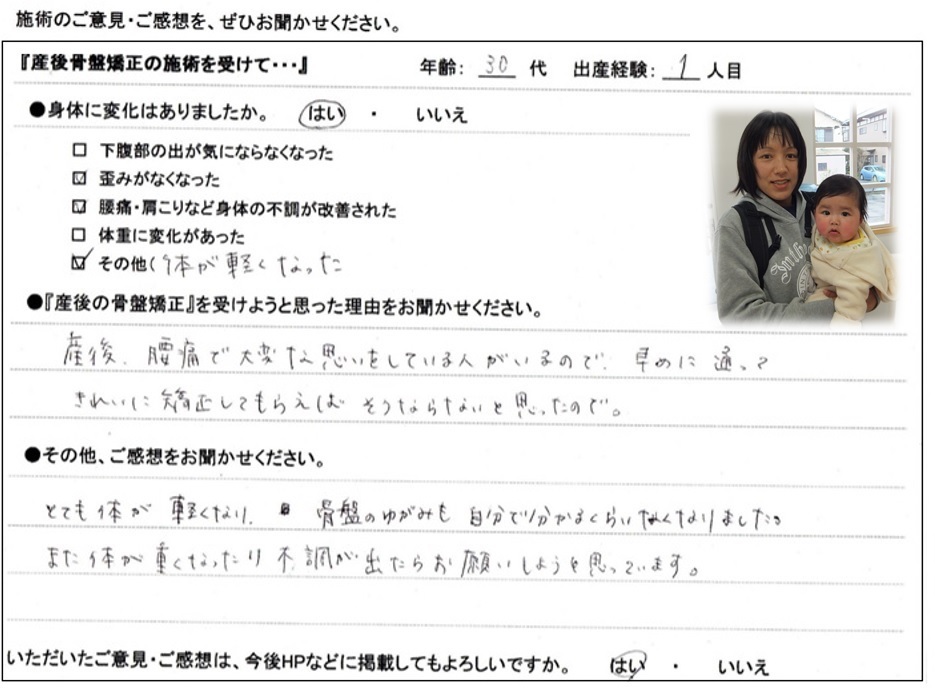 施術のご意見・ご感想を、ぜひお聞かせください。
『産後骨盤矯正の施術を受けて・・・』 年齢: 30 代 出産経験: 1 人目
●身体に変化はありましたか。 はい ・ いいえ
□ 下腹部の出が気にならなくなった
☑ 歪みがなくなった
☑ 腰痛・肩こりなど身体の不調が改善された
□ 体重に変化があった
☑ その他(体が軽くなった
●『産後の骨盤矯正』を受けようと思った理由をお聞かせください。
産後、腰痛で大変な思いをしている人がいるので、早めに通って
きれいに矯正してもらえば そうならないと思ったので。
●その他、ご感想をお聞かせください。
とても体が軽くなり、骨盤のゆがみも自分で分かるくらいなくなりました。
また体が重くなったり不調が出たらお願いしようと思っています。
いただいたご意見・ご感想は、今後HPなどに掲載してもよろしいですか。 はい ・ いいえ